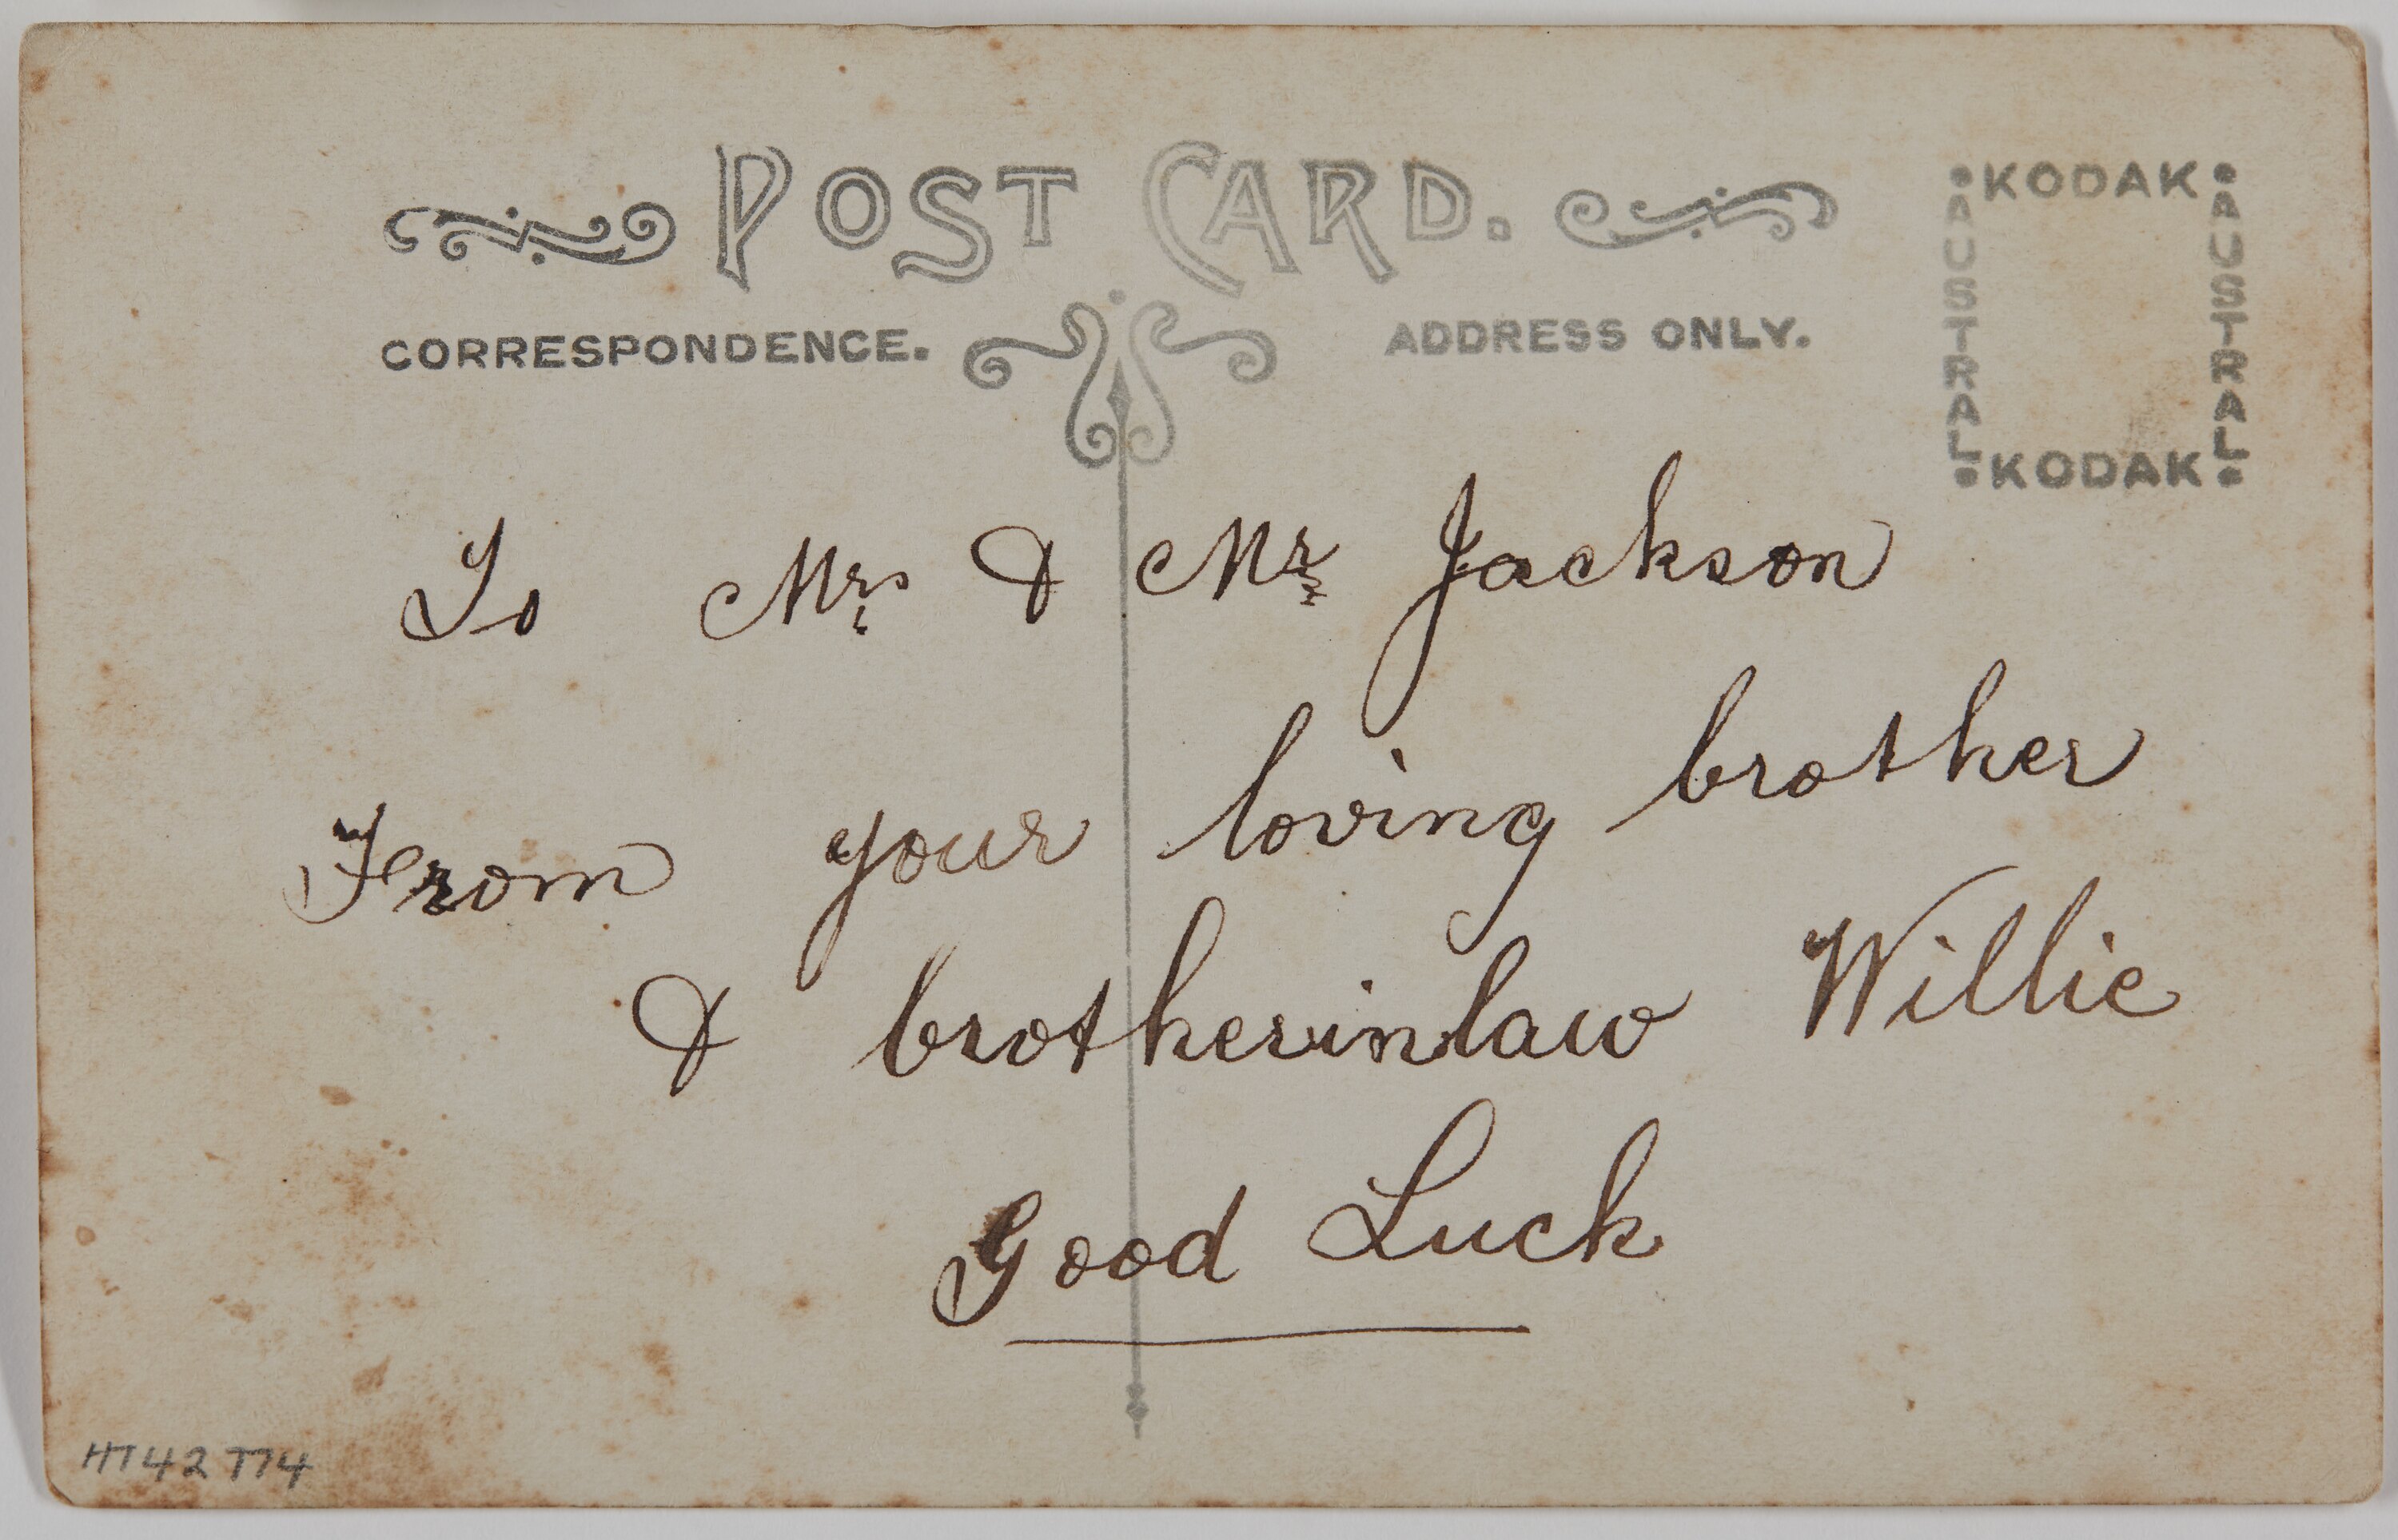 POST CARD.
CORRESPONDENCE.
ADDRESS ONLY.
KODAK
AUSTRAL
AUSTRAL
KODAK
To Mrs & Mr Jackson
From your loving brother
& brotherinlaw Willie
Good Luck
HT42774